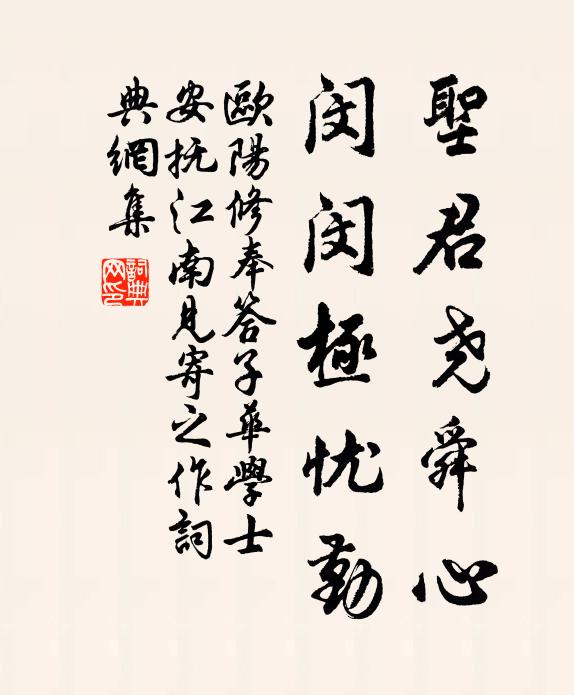 聖君尧舜心
闵闵極忧勤
歐陽修奉答子華學士
安抚江南見寄之作詞
典網集
詞典
网印